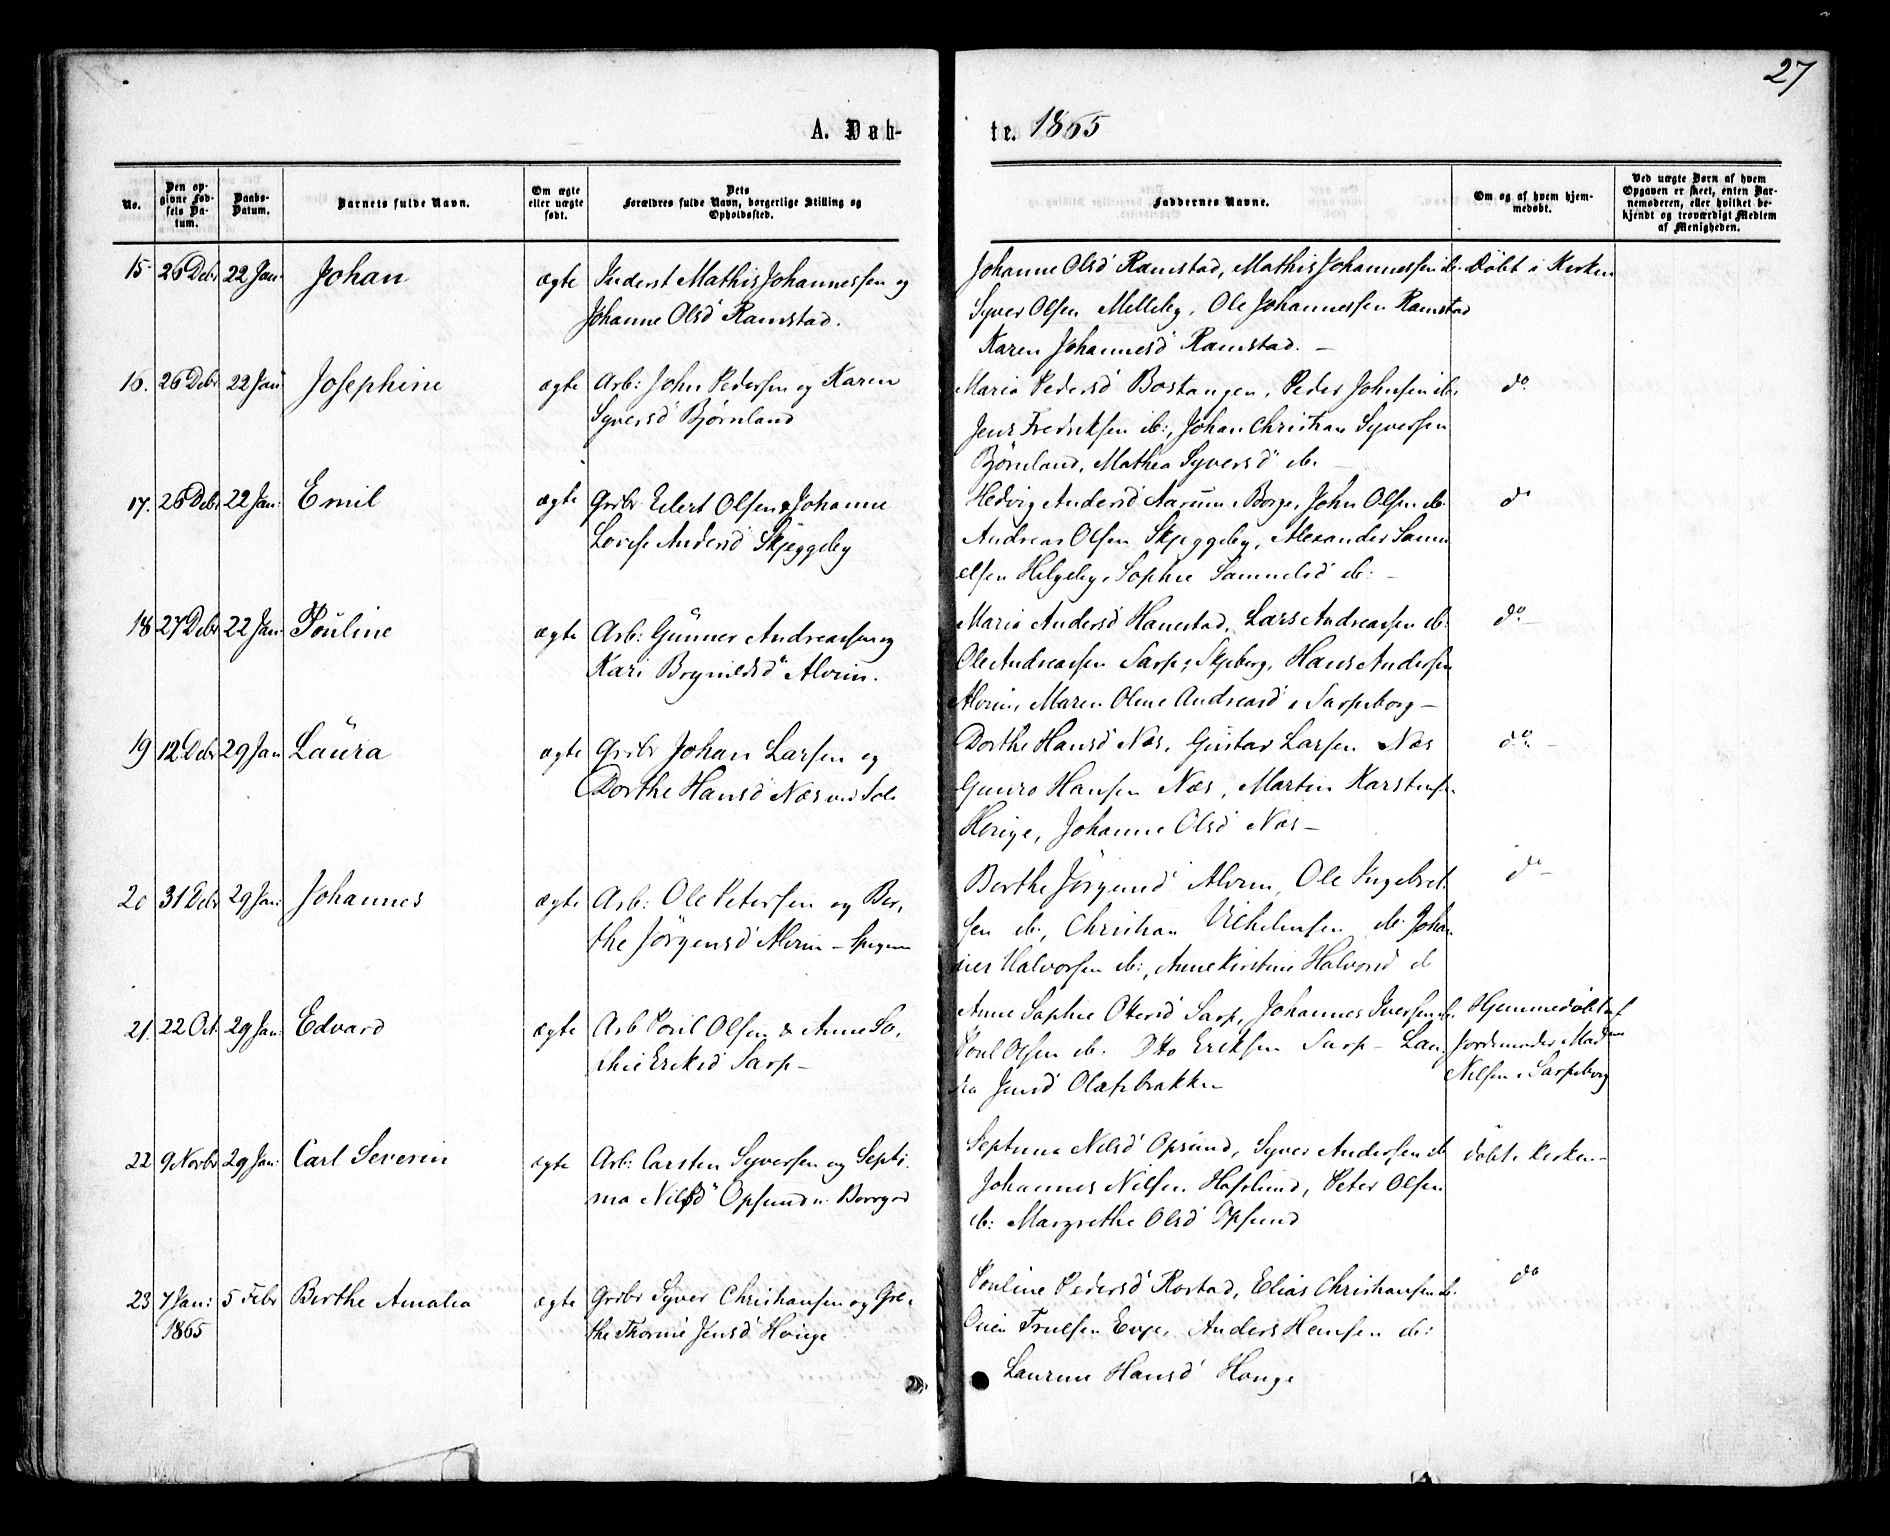 27
A. Døb-
te. 1865
No.
Den op-
givne Fød-
sels Da-
tum.
Daabs-
Datum.
Barnets fulde Navn.
Om ægte
eller uægte
født.
Dets
Forældres fulde Navn, borgerlige Stilling og
Opholdssted.
Faddernes Navne.
Om og af hvem hjem-
medøbt.
Ved uægte Børn af hvem
Opgaven er skeet, enten Bar-
nemoderen, eller hvilket be-
kjendt og troværdigt Medlem
af Menigheden.
15 26 Debr 22 Jan: Johan ægte Inderst Mathis Johannessen og
Johanne Olsd Ramstad.
Johanne Olsd Ramstad, Mathis Johannessen ib. Døbt i Kirken
Syver Olsen Melleby, Ole Johannessen Ramstad
Karen Johannesd Ramstad. —
16. 26 Debr 22 Jan Josephine ægte Arb: John Pedersen og Karen
Syversd Bjørnland
Maria Pedersd Bostangen, Peder Johnsen ib: do
Jens Fredriksen ib:, Johan Christian Syversen
Bjørnland, Mathea Syversd ib. —
17. 26 Debr 22 Jan: Emil ægte Grdbr Eilert Olsen & Johanne
Lovise Andersd Skjeggeby
Hedvig Andersd Aarum i Borge, John Olsen ib. do
Andreas Olsen Skjeggeby, Alexander Samu
elsen Helgeby, Sophie Samuelsd ib: —
18 27 Debr 22 Jan: Pouline ægte Arb: Gunner Andreassen og
Kari Brynildsd Alvim.
Maria Andersd Hanestad, Lars Andreassen ib: do —
Ole Andreassen Sarp i Skjeberg, Hans Andersen
Alvim, Maren Oline Andreasd i Sarpsborg —
19 12 Debr 29 Jan Laura ægte Grdbr Johan Larsen og
Dorthe Hansd Næs ved Soli
Dorthe Hansd Næs, Gustav Larsen Næs do —
Gunro Hansen Næs, Martin Karstens.
Houge, Johanne Olsd Næs —
20 31 Debr 29 Jan: Johannes ægte Arb: Ole Petersen og Ber,
the Jörgensd Alvim —
Berthe Jörgensd Alvim, Ole Ingebret do —
sen ib:, Christian Vilhelmsen ib. Johan
nes Halvorsen ib:, Anne Kirstine Halvorsd ib
21. 22 Oct 29 Jan: Edvard ægte Arb Poul Olsen & Anne So,
phie Eriksd Sarp —
Anne Sophie Sarp, Johannes Iversen ib. Hjemmedöbt af
Poul Olsen ib. Otto Eriksen Sarp — Lau Jordemoder Madame
ra Jensd Olafsbakken Nilsen i Sarpsborg
22 9 Novbr 29 Jan: Carl Severin ægte Arb: Carsten Syversen og Septi,
ma Nilsd Opsund u: Borrgrd
Septima Nilsd Opsund, Syver Andersen ib döbt i Kirken —
Johannes Nilsen Hafslund, Peter Olsen
ib: Margrethe Olsd Opsund
23 7 Jan: 5 Febr Berthe Amalia ægte Grdbr Syver Christiansen og Gre,
1865 the Thorine Jensd Houge
Pouline Pedersd Rostad, Elias Christiansen ib. do
Truelsen Evje, Anders Hansen ib:
Laurine Hansd Houge